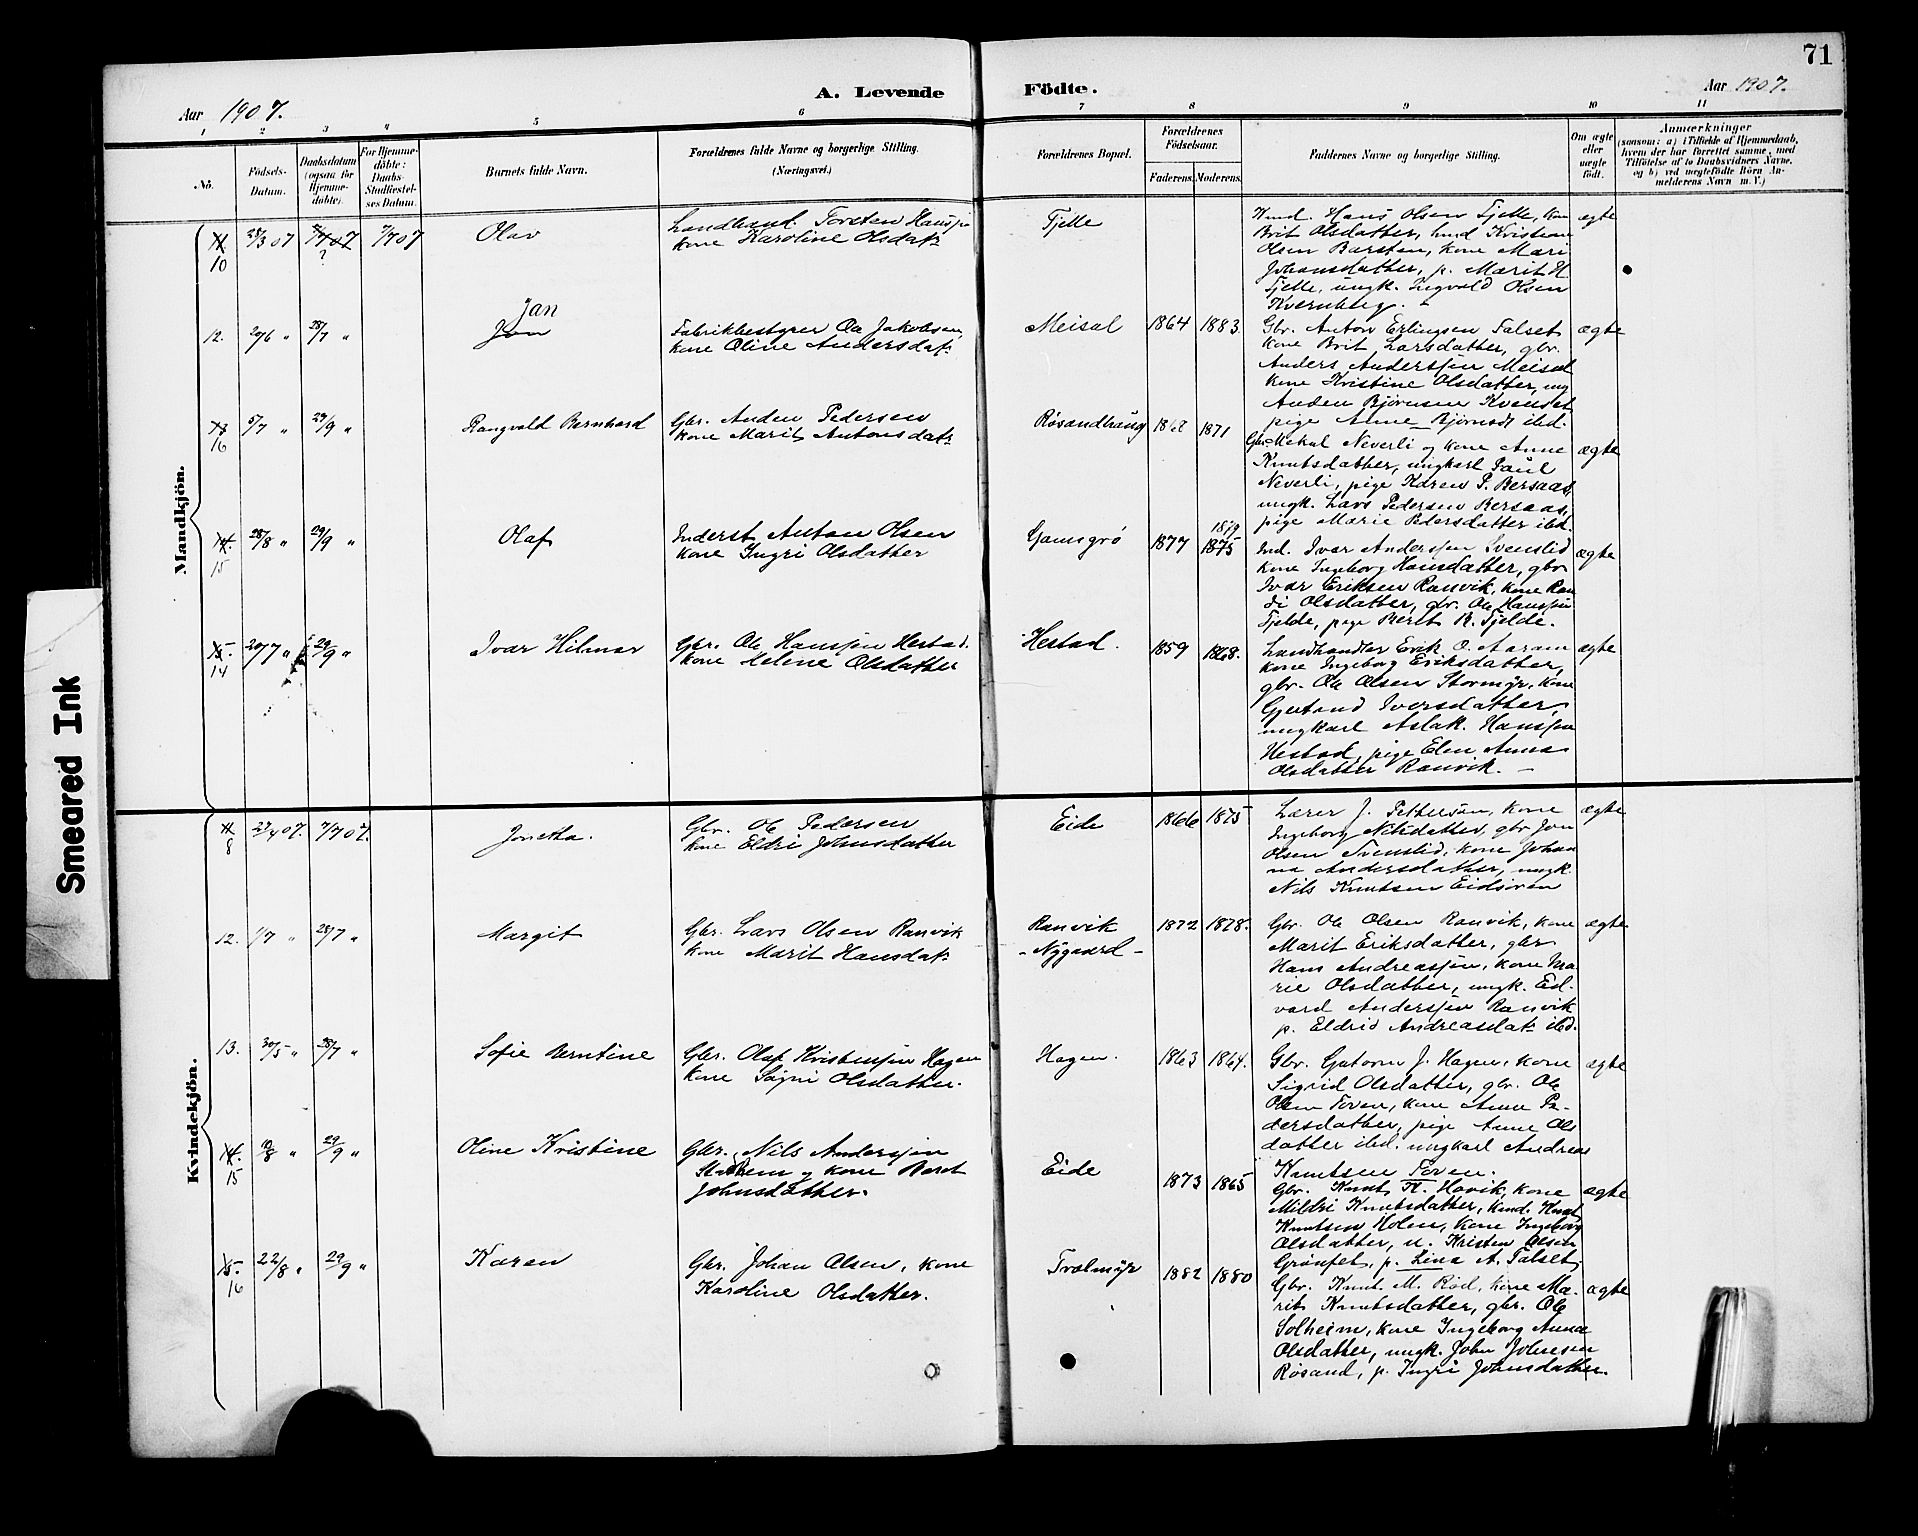 71
Aar 1907.
A. Levende
Födte.
Aar 1907.
1 2 3 4 5 6 7 8 9 10 11
No.
Födsels-
Datum.
Daabsdatum
(ogsaa for
Hjemme-
döbte).
For Hjemme-
döbte:
Daabs-
Stadfæstel-
ses Datum.
Barnets fulde Navn.
Forældrenes fulde Navne og borgerlige Stilling.
(Næringsvei.)
Forældrenes Bopæl.
Forældrenes
Födselsaar.
Faderens. Moderens.
Faddernes Navne og borgerlige Stilling.
Om ægte
eller
uægte
födt.
Anmærkninger
(saasom: a) i Tilfælde af Hjemmedaab,
hvem der har forrettet samme, med
Tilföielse af to Daabsvidners Navne,
og b) ved uægtefödte Börn An-
melderens Navn m. V.)
Mandkjön.
11
10
28/3 07
7/7 07
?
7/7 07
Olav
Landhand. Torsten Hanssen
kone Karoline Olsdatr
Tjelle
Kmd. Hans Olsen Tjelle, kone
Brit Olsdatter, kmd Kristian
Olsen Barsten, kone Mari
Johansdatter, p. Marit H.
Tjelle, ungk. Ingvald Olsen
Kvernberg.
ægte
12.
20/6 "
28/7 "
Jan
Jon
Fabrikbestyrer Ole Jakobsen
kone Oline Andersdatr
Meisal
1864
1883
Gbr. Anton Erlingsen Falset
kone Brit Larsdatter, gbr.
Anders Anderssen Meisal
kone Kristine Olsdatter, ung
Anders Bjørnsen Kvenset
pige Anne Bjørnsdt ibd.
ægte
13
16
5/7 "
29/9 "
Rangvald Bernhard
Gbr. Anders Pedersen
kone Marit Antonsdatr
Røsandhaug
1868
1871
Gbr. Mekal Neverli og kone Anne
Knutsdatter, ungkarl Paul
Neverli, pige Karen P. Bersaas,
ungk. Lars Pedersen Bersaas,
pige Marie Pedersdatter ibd.
ægte
14.
15
28/8 "
29/9 "
Olaf
Inderst Anton Olsen
kone Ingri Olsdatter
Gamgrø
1877
1879
1875
Ind. Ivar Anderssen Svenslid
kone Ingeborg Hansdatter, gbr
Ivar Eriksen Ranvik, kone Ran
di Olsdatter, gbr. Ole Hanssen
Tjelde, pige Berit R. Tjelde.
ægte
15.
14
20/7 "
29/9 "
Ivar Hilmar
Gbr. Ole Hanssen Hestad.
kone Helene Olsdatter
Hestad.
1859
1868.
Landhandler Erik O. Aaram
kone Ingeborg Eriksdatter,
gbr. Ole Olsen Stormyr, kone
Gjertrud Iversdatter,
ungkarl Aslak Hanssen
Hestad, pige Elen Anna
Olsdatter Ranvik. —
ægte
Kvindekjön.
11
8
27/4 07.
7/7 07.
Jonetta.
Gbr. Ole Pedersen
kone Eldri Johnsdatter
Eide
1866
1875
Lærer J. Pettersen, kone
Ingeborg Nilsdatter, gbr Jon
Olsen Svenslid, kone Johan
na Andersdatter, ungk.
Nils Knutsen Eidsøren
ægte
12.
1/7 "
28/7 "
Margit
Gbr. Lars Olsen Ranvik
kone Marit Hansdatr
Ranvik
- Nygaard -
1872
1878.
Gbr. Ole Olsen Ranvik, kone
Marit Eriksdatter, gbr
Hans Andreassen, kone Ma
rie Olsdatter, ungk. Ed-
vard Anderssen Ranvik
p. Eldrid Andreasdatr ibd.
ægte
13.
30/5 "
28/7 "
Sofie Berntine
Gbr. Olaf Kristenssen Hagen
kone Signi Olsdatter.
Hagen.
1863
1864.
Gbr. Guttorm J. Hagen, kone
Sigrid Olsdatter, gbr. Ole
Olsen Toven, kone Anne Pe-
dersdatter, pige Anne Ols
datter ibd. ungkarl Andreas
Knutsen Toven.
ægte
14.
15
10/8 "
29/9 "
Oline Kristine
Gbr. Nils Anderssen
og kone Berit
Johnsdatter.
Eide
1873
1865
Gbr. Knut K. Havik, kone
Mildri Knutsdatter, kmd. Knut
Knutsen Holen, kone Ingeborg
Olsdatter, u. Kristen Olsen
Grønset, p. Lina A. Falset
ægte
15.
16
22/8 "
29/9 "
Karen
Gbr. Johan Olsen, kone
Karoline Olsdatter.
Trælmyr
1882
1880
Gbr. Knut M. Rød, kone Ma-
rit Knutsdatter, gbr. Ole
Solheim, kone Ingeborg Anna
Olsdatter, ungk. John Johnsen
Røsand, p. Ingri Johnsdatter.
ægte
Smeared Ink